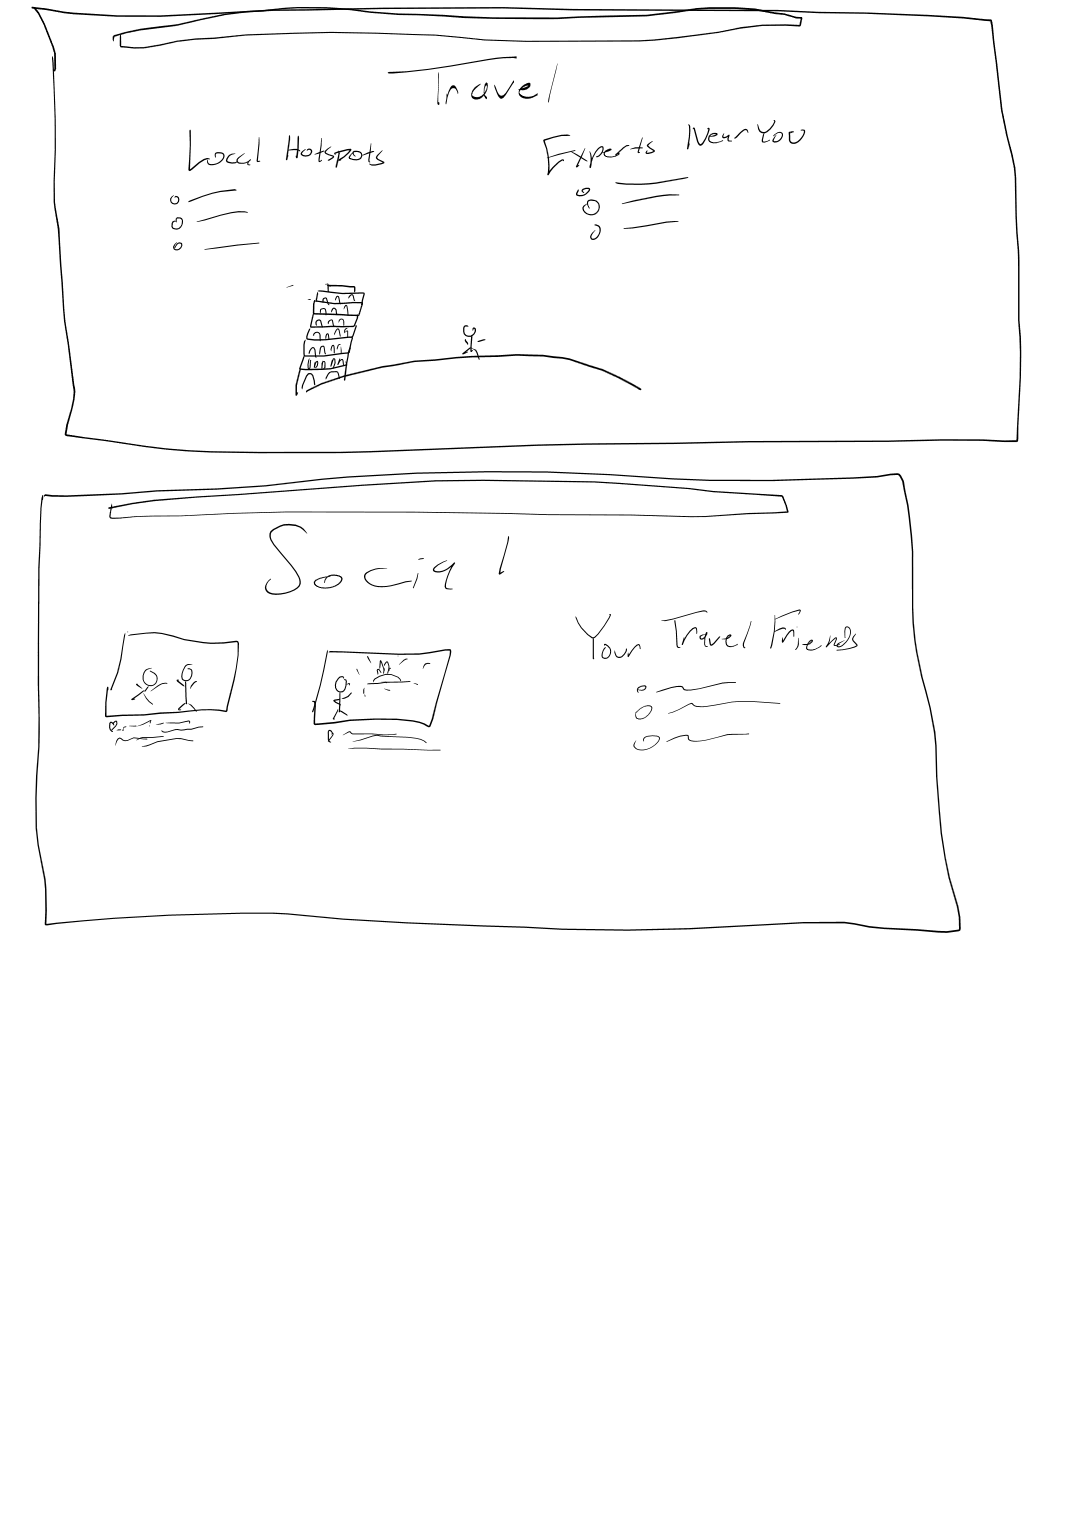 Travel
Local Hotspots
Experts Near You
Social
Your Travel Friends